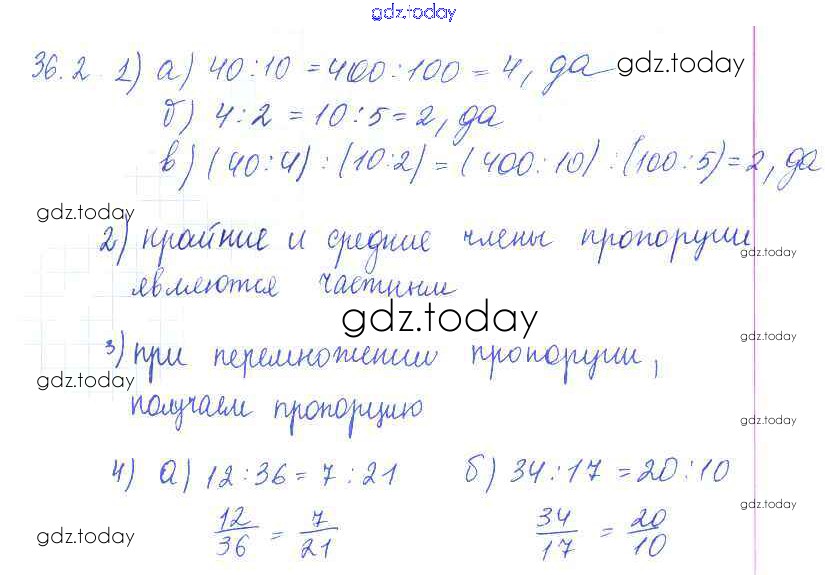 gdz.today
36.2 1) а) 40:10 = 400:100 = 4, да gdz.today
б) 4:2 = 10:5 = 2, да
в) (40:4) : (10:2) = (400:10) : (100:5) = 2, да
gdz.today
2) крайние и средние члены пропорции
gdz.today
являются частными
gdz.today
gdz.today
3) при перемножении пропорции,
gdz.today
получаем пропорцию
gdz.today
4) а) 12:36 = 7:21 б) 34:17 = 20:10
gdz.today
12/36 = 7/21 34/17 = 20/10
gdz.today